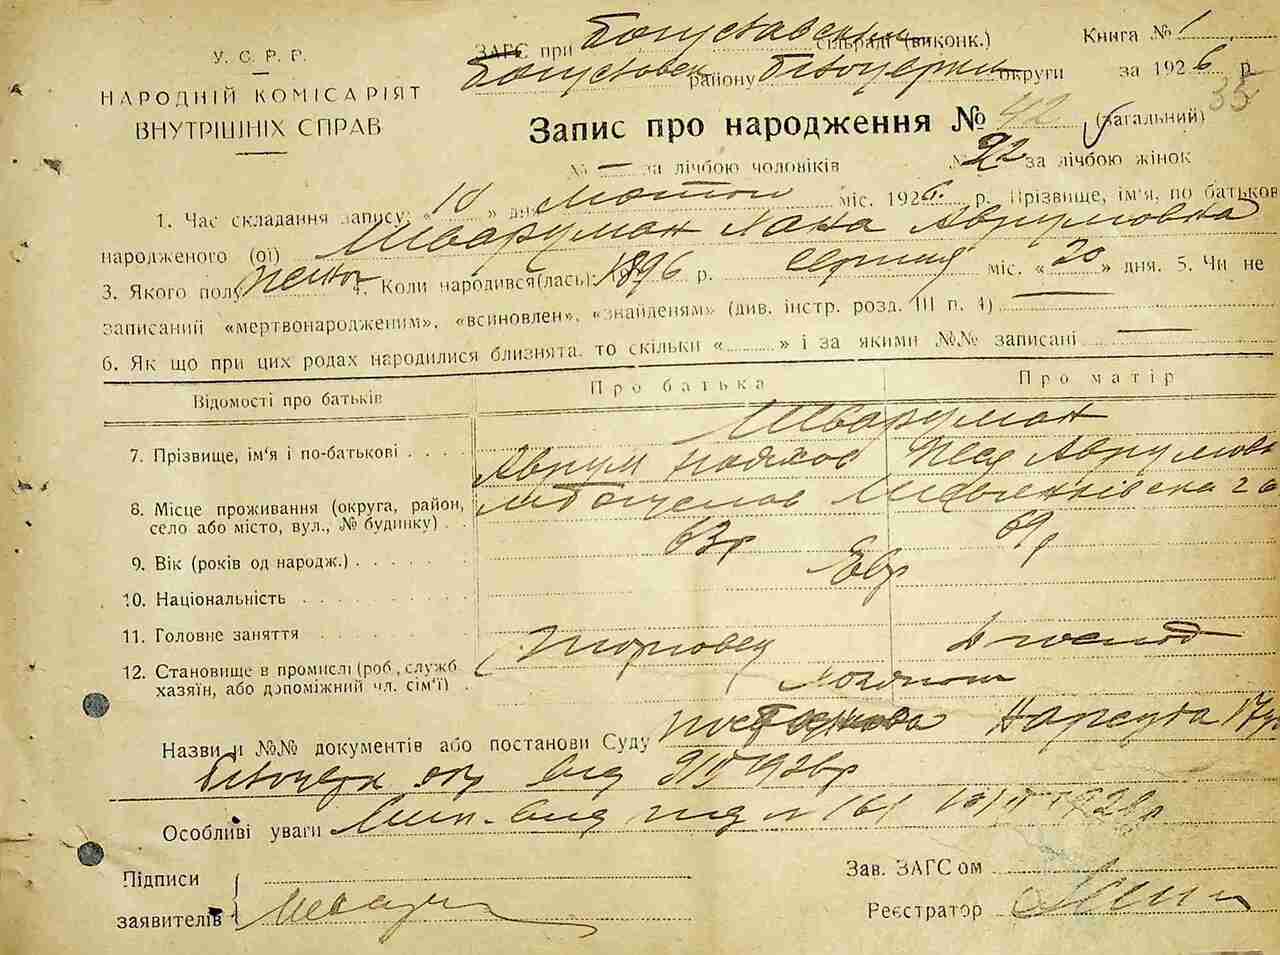 У.С.Р.Р.
НАРОДНІЙ КОМІСАРІЯТ
ВНУТРІШНІХ СПРАВ
ЗАГС при Богуславськ. сільраді (виконк.) Книга № 1
Богуславськ району Білоцерк. округи за 1926 р. 35
Запис про народження № 42 (загальний)
№ — за лічбою чоловіків № 22 за лічбою жінок
1. Час складання запису: «10» дня лютого міс. 1926 р. Прізвище, ім'я, по батькові
народженого (ої) Шварцман Хана Аврумовна
3. Якого полу жіноч 4. Коли народився(лась): 1896 р. серпня міс. «20» дня. 5. Чи не
записаний «мертвонародженим», «всиновлен», «знайденям» (див. інстр. розд. III п. 4) —
6. Як що при цих родах народилися близнята, то скільки «...» і за якими №№ записані —
Відомості про батьків Про батька Про матір
Шварцман
7. Прізвище, ім'я і по-батькові Аврум Песя Аврумовн
8. Місце проживання (округа, район,
село або місто, вул., № будинку) м Богуслав 26
9. Вік (років од народж.) 63р 69р
10. Національність Євр
11. Головне заняття Торговец
12. Становище в промислі (роб., служб.
хазяїн, або допоміжний чл. сім'ї)
Назви и №№ документів або постанови Суду постанова Нарсуда 17
Білоцерк окр від 9/II 1926р
Особливі уваги 161 10/II 1926р
Підписи
заявителів
Зав. ЗАГС ом
Реєстратор